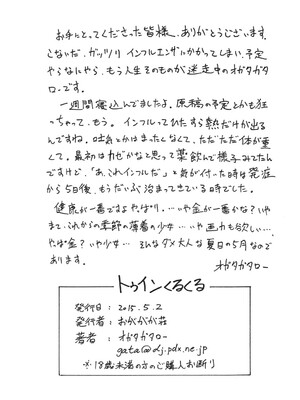 お手にとってくださった皆様、ありがとうございます。
こないだ、ガッツリ インフルエンザにかかってしまい、予定
やらなにやら、もう人生そのものが迷走中のオガタガタ
ローです。
一週間寝込んでましたよ。原稿の予定とかも狂
っちゃって、もう。インフルってひたすら熱だけが出る
んですね。吐気とかはまったくなくて、ただただ体が重
くて。最初はカゼかなと思って薬飲んで様子みてたん
ですけど、「あ、これインフルだ」と気が付いた時は発症
から5日後、もうだいぶ治まってきている時でした。
健康が一番ですよやっぱり。…いや金が一番かな?いや
まて、これからの季節の薄着の少女…いや画力も欲しい…、
やっぱ金?いや少女… そんなダメ大人な夏日の5月なので
あります。
オガタガタロー
トゥインくるくる
発行日：2015.5.2
発行者：おがががが荘
著者：オガタガタロー
gata@dj.pdx.ne.jp
※18歳未満の方のご購入お断り